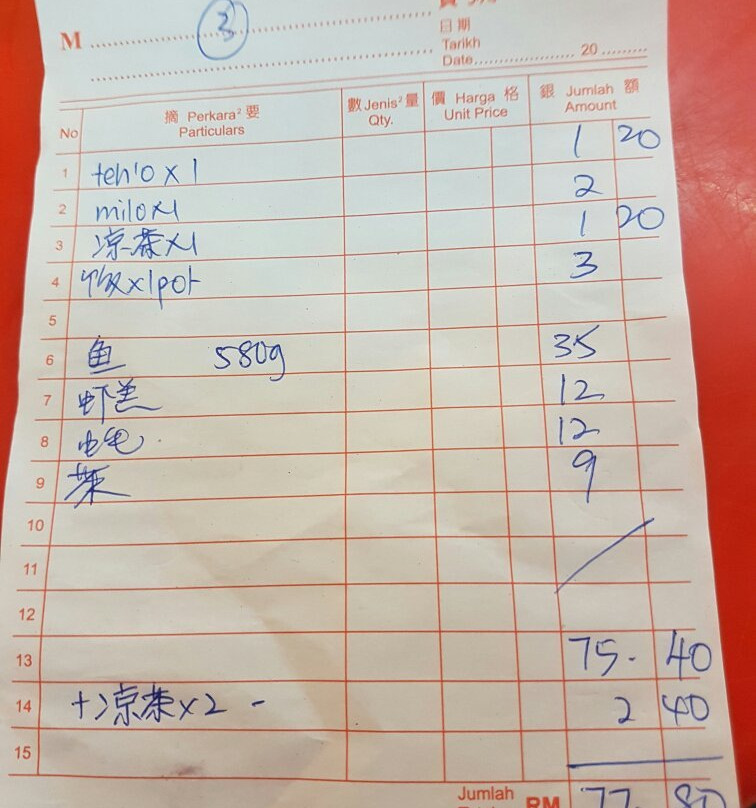 3
M
日期
Tarikh
Date 20
No 摘 Perkara² 要 Particulars 數 Jenis² 量 Qty. 價 Harga 格 Unit Price 銀 Jumlah 額 Amount
1 teh'o x 1 1 20
2 milo x1 2
3 凉茶 x1 1 20
4 饭 x 1pot 3
5
6 鱼 580g 35
7 虾羔 12
8 12
9 菜 9
10
11
12
13 75. 40
14 +凉茶 x 2 - 2 40
15
Jumlah RM 77. 80